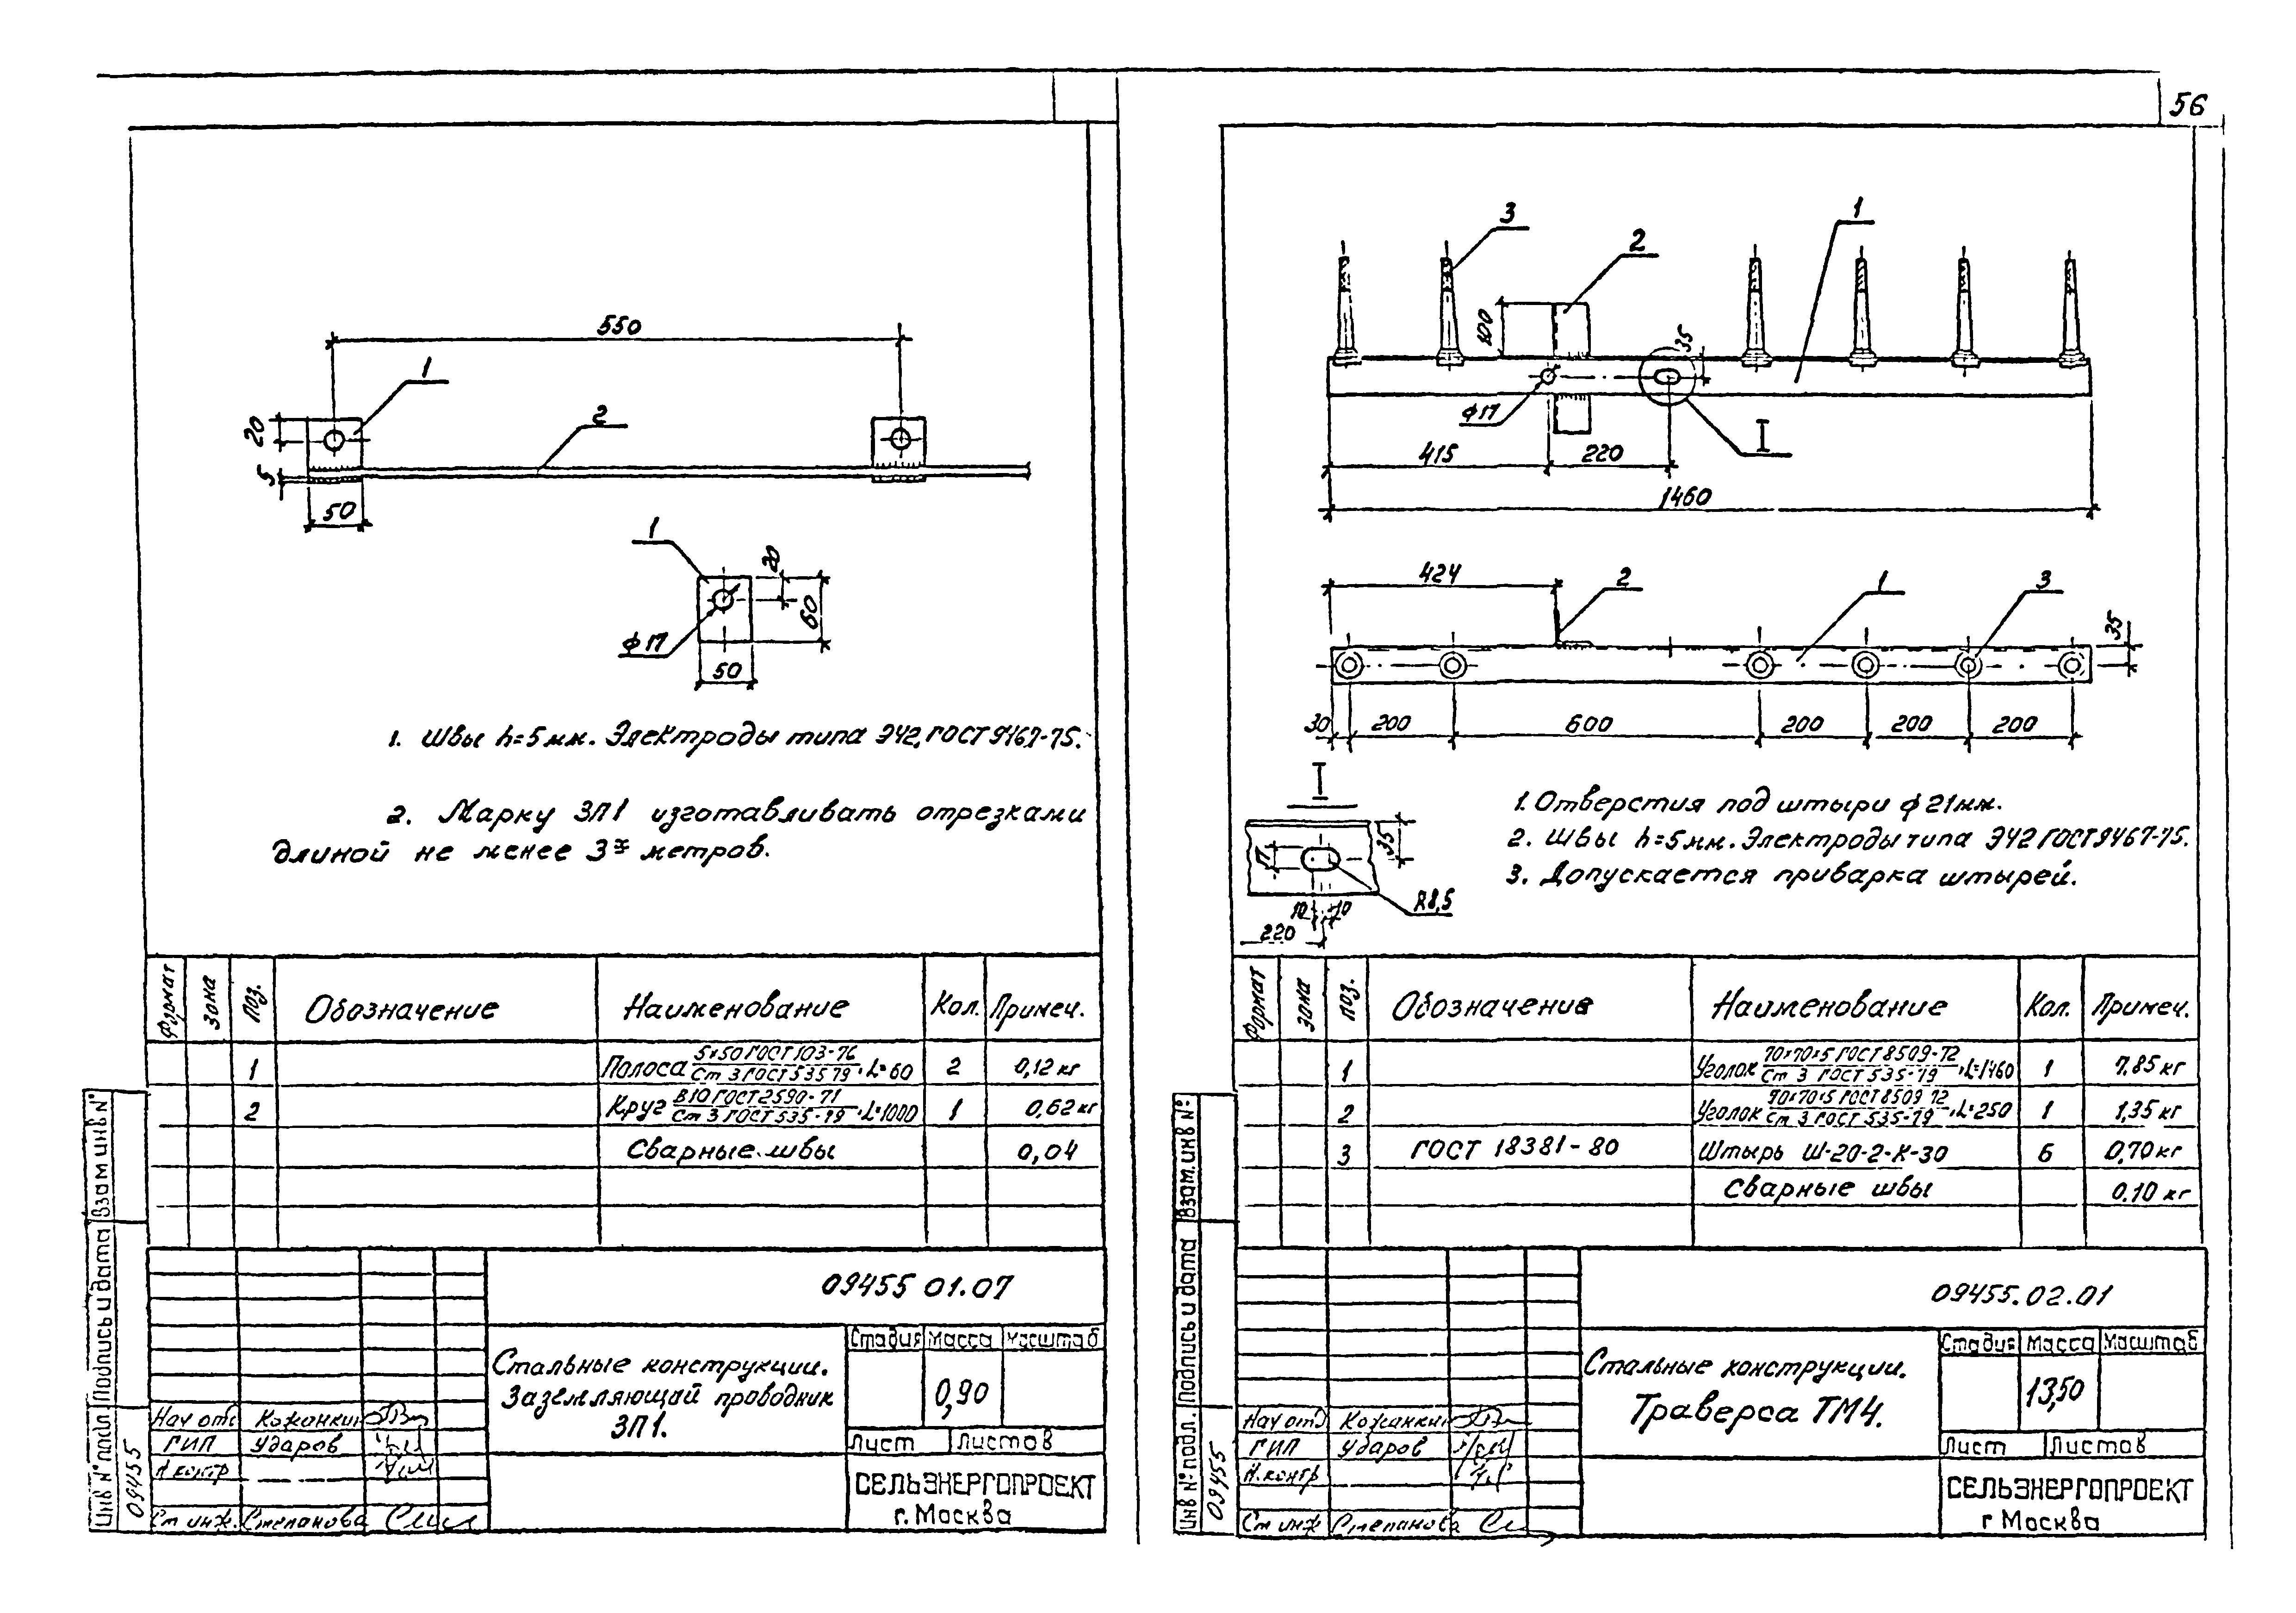 56
550
1
2
20
5
50
1
20
60
ф17
50
1. Швы h=5мм. Электроды типа Э42, ГОСТ 9467-75.
2. Марку ЗП1 изготавливать отрезками
длиной не менее 3х метров.
Формат Зона Поз. Обозначение Наименование Кол. Примеч.
1 Полоса 5х50 ГОСТ 103-76 / Ст 3 ГОСТ 535 79, L=60 2 0,12 кг
2 Круг В10 ГОСТ 2590-71 / Ст 3 ГОСТ 535-79, L=1000 1 0,62 кг
Сварные швы 0,04
Взам инв N°
Подпись и дата
Инв N° подл
09455
09455 01.07
Стальные конструкции.
Заземляющий проводник
ЗП1.
Стадия Масса Масштаб
0,90
Лист Листов
СЕЛЬЭНЕРГОПРОЕКТ
г. Москва
Нач отд Кожанкин
ГИП Ударов
Н контр
Ст инж. Степанова
3
2
1
100
35
ф17
I
415
220
1460
424
2
1
3
35
30 200 600 200 200 200
I
17
35
R8,5
10 10
220
1. Отверстия под штыри ф 21мм.
2. Швы h=5мм. Электроды типа Э42 ГОСТ 9467-75.
3. Допускается приварка штырей.
Формат Зона Поз. Обозначение Наименование Кол. Примеч.
1 Уголок 70х70х5 ГОСТ 8509-72 / Ст 3 ГОСТ 535-79, L=1460 1 7,85 кг
2 Уголок 70х70х5 ГОСТ 8509 72 / Ст 3 ГОСТ 535-79, L=250 1 1,35 кг
3 ГОСТ 18381-80 Штырь Ш-20-2-К-30 6 0,70 кг
Сварные швы 0.10 кг
Взам. инв N°
Подпись и дата
Инв N° подл.
09455
09455.02.01
Стальные конструкции.
Траверса ТМ4.
Стадия Масса Масштаб
13,50
Лист Листов
СЕЛЬЭНЕРГОПРОЕКТ
г Москва
Нач отд Кожанкин
ГИП Ударов
Н. контр
Ст инж Степанова